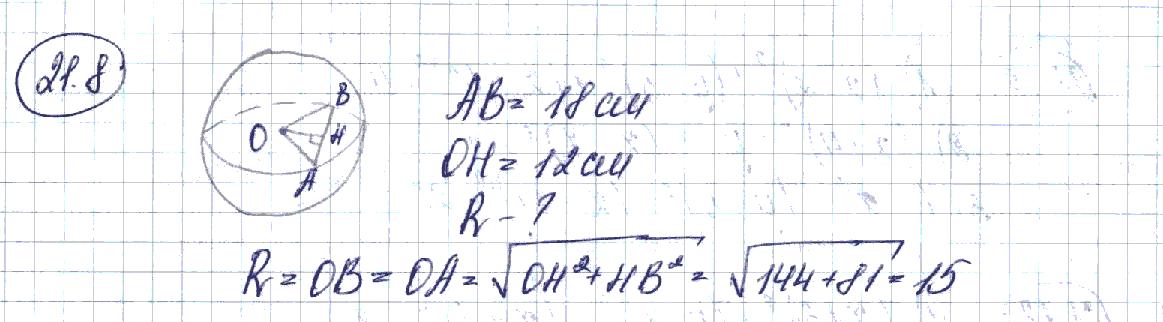 21.8
B
O
H
A
AB = 18 см
OH = 12 см
R - ?
R = OB = OA = √(OH²+HB²) = √(144+81) = 15